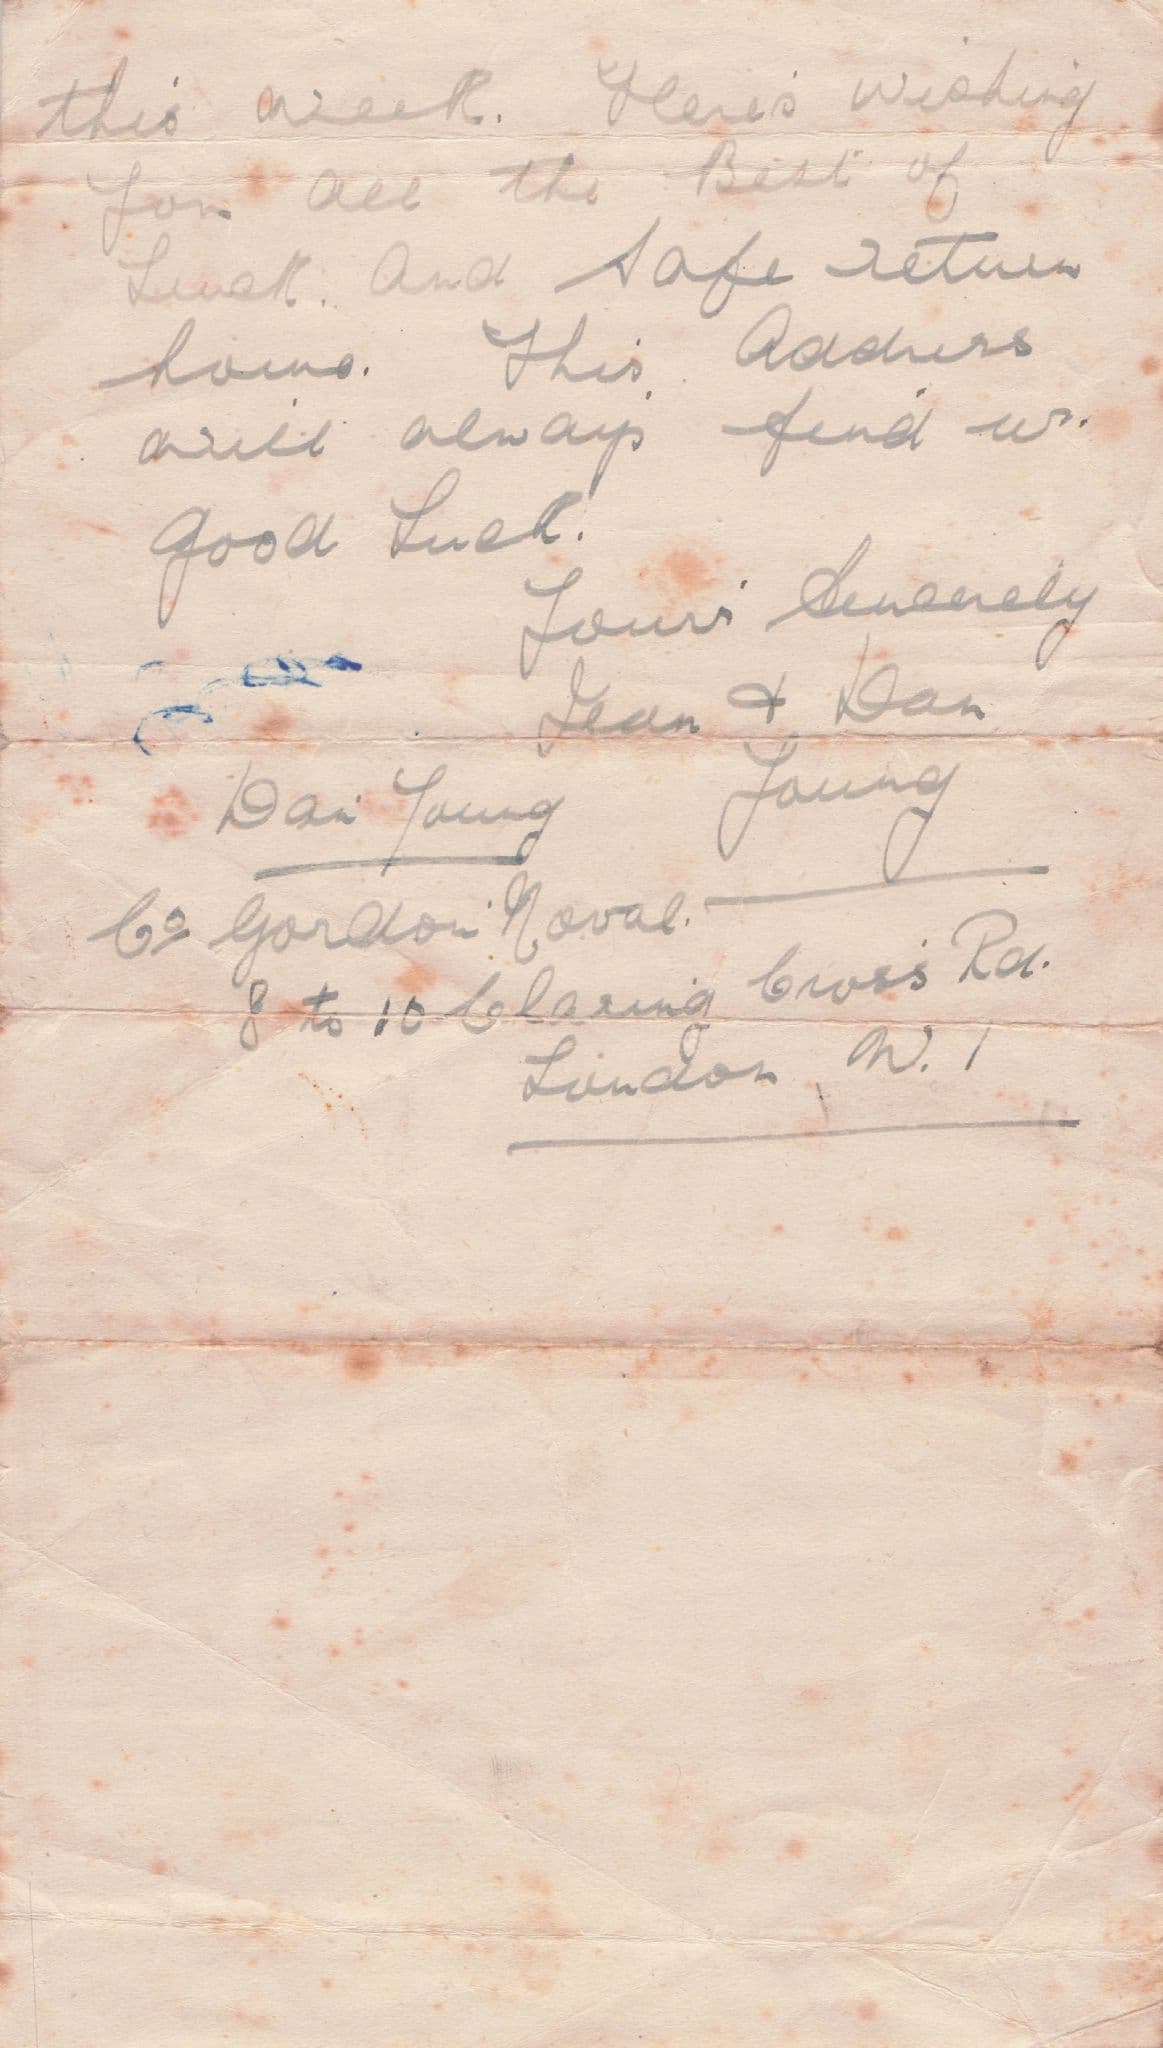 this week. Here's wishing
you all the Best of
Luck. And safe return
home. This Address
will always find us.
Good Luck.
Yours Sincerely
Jean & Dan
Young
Dan Young
C/o Gordon Noval.
8 to 10 Charing Cross Rd.
London W.1